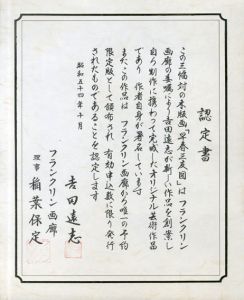 認定書
この三幅対の木版画「早春三友図」は フランクリン
画廊の委嘱により吉田遠志が新しい作品を創案し
自ら制作に携わって完成したオリジナル芸術作品
であり 作者自身が署名しています
またこの作品は フランクリン画廊から唯一の予約
限定版として頒布され 有効申込数に限り発行
されたものであることを認定します
昭和五十四年十月
吉田遠志
フランクリン画廊
理事 稲葉保定